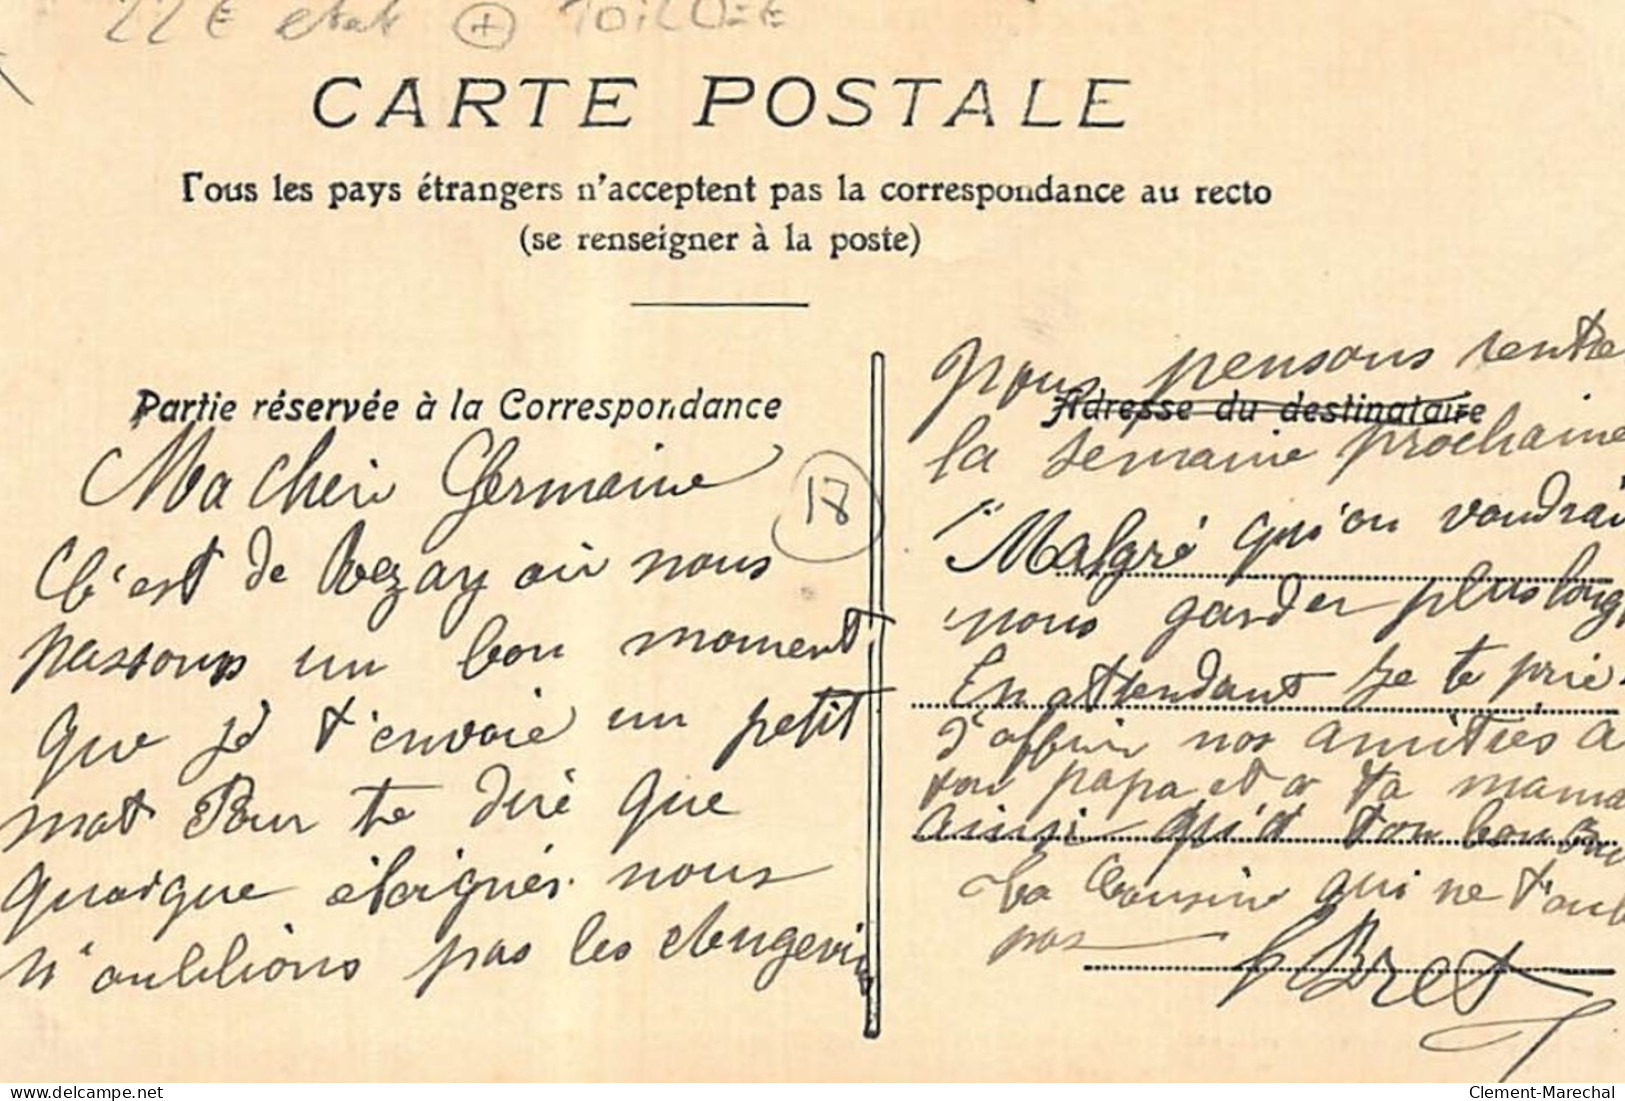 22€ etat + TOILÉE
CARTE POSTALE
Tous les pays étrangers n'acceptent pas la correspondance au recto
(se renseigner à la poste)
Partie réservée à la Correspondance
Ma chéri Germaine
18
C'est de Vezay où nous
passons un bon moment
que je t'envoie un petit
mot Pour te dire que
quoique éloignés nous
n'oublions pas les
Nous pensons rentre
Adresse du destinataire
la semaine prochaine
Malgré qu'on voudrai
nous garder plus long
En attendant je te prie
d'offrir nos amitiés a
ton papa et a ta mama
ainsi qu'a ton bon
Ta Cousine qui ne t'oubl
pas
Bret
www.delcampe.net
Clement-Marechal